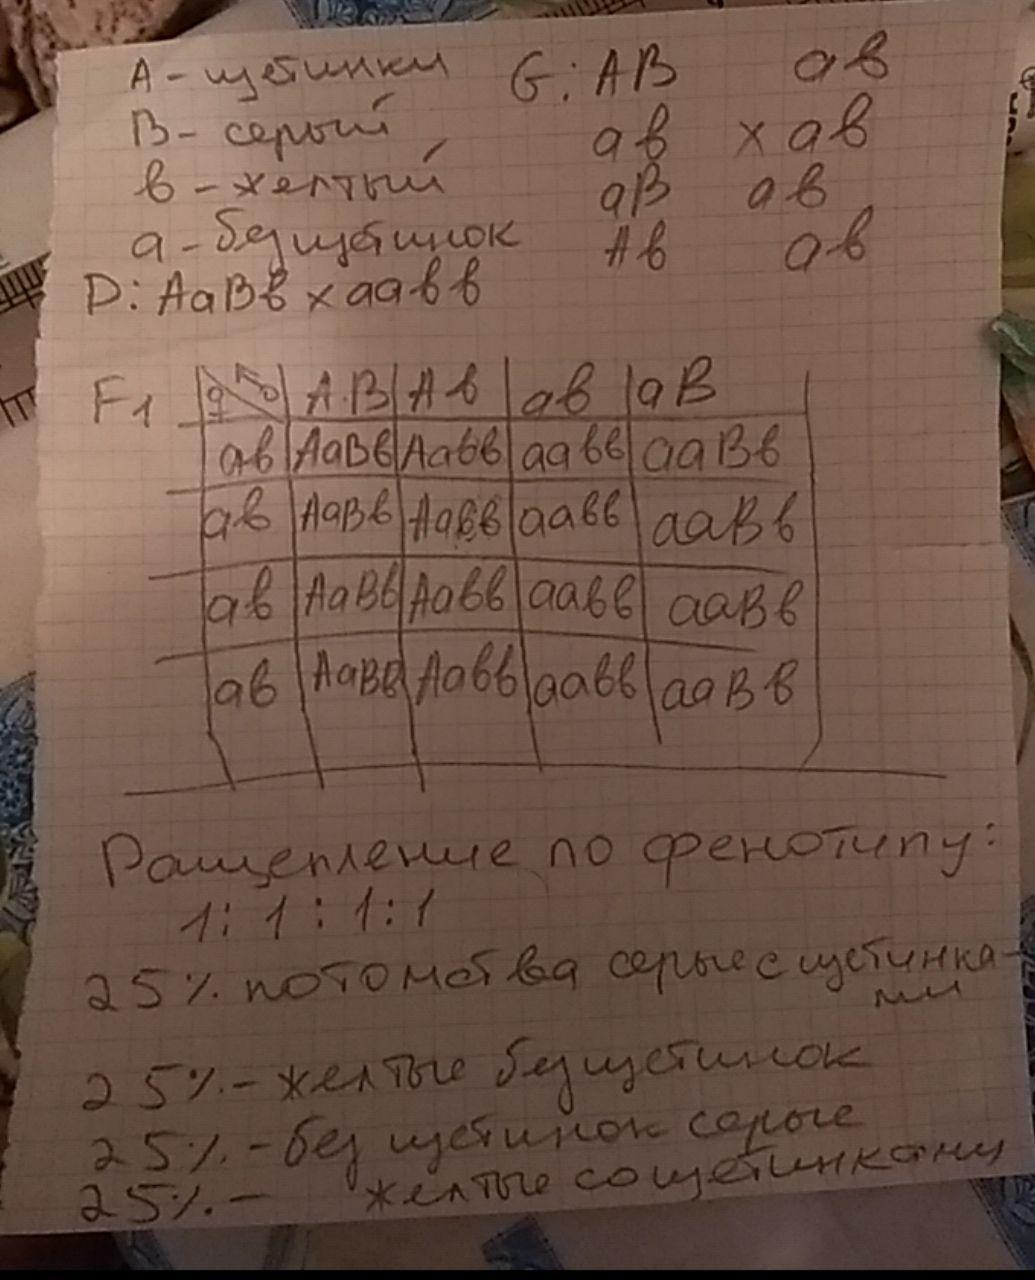 А - щетинки G: АВ ав
В - серый ав х ав
в - желтый аВ ав
а - без щетинок Ав ав
Р: АаВв х аавв
F1 ♀ ♂ АВ Ав ав аВ
ав АаВв Аавв аавв ааВв
ав АаВв Аавв аавв ааВв
ав АаВв Аавв аавв ааВв
ав АаВв Аавв аавв ааВв
Ращепление по фенотипу:
1: 1 : 1:1
25% потомства серые с щетинка-
ми
25% - желтые без щетинок
25% - без щетинок серые
25% - желтые со щетинками